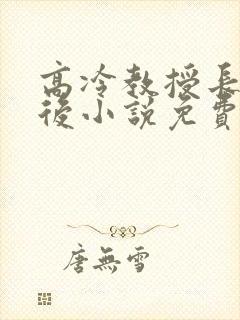 高冷教授長
後小説免費
唐無雪